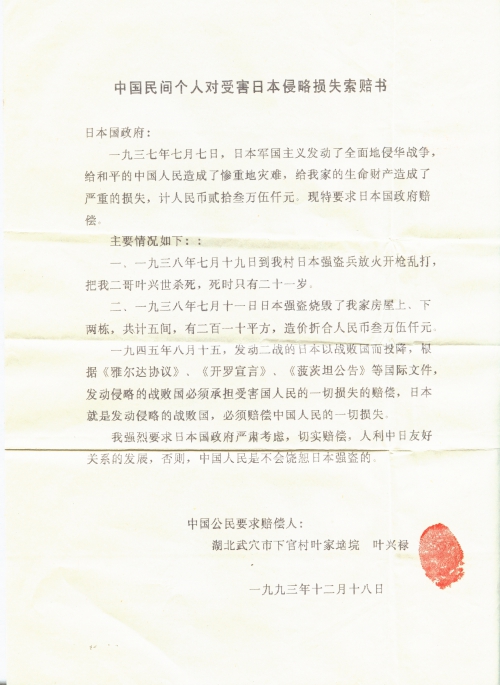 中国民间个人对受害日本侵略损失索赔书
日本国政府：
一九三七年七月七日，日本军国主义发动了全面地侵华战争，
给和平的中国人民造成了惨重地灾难，给我家的生命财产造成了
严重的损失，计人民币贰拾叁万伍仟元。现特要求日本国政府赔
偿。
主要情况如下：：
一、一九三八年七月十九日到我村日本强盗兵放火开枪乱打，
把我二哥叶兴世杀死，死时只有二十一岁。
二、一九三八年七月十一日日本强盗烧毁了我家房屋上、下
两栋，共计五间，有二百一十平方，造价折合人民币叁万伍仟元。
一九四五年八月十五，发动二战的日本以战败国而投降，根
据《雅尔达协议》、《开罗宣言》、《菠茨坦公告》等国际文件，
发动侵略的战败国必须承担受害国人民的一切损失的赔偿，日本
就是发动侵略的战败国，必须赔偿中国人民的一切损失。
我强烈要求日本国政府严肃考虑，切实赔偿，人利中日友好
关系的发展，否则，中国人民是不会饶恕日本强盗的。
中国公民要求赔偿人：
湖北武穴市下官村叶家垅垸 叶兴禄
一九九三年十二月十八日